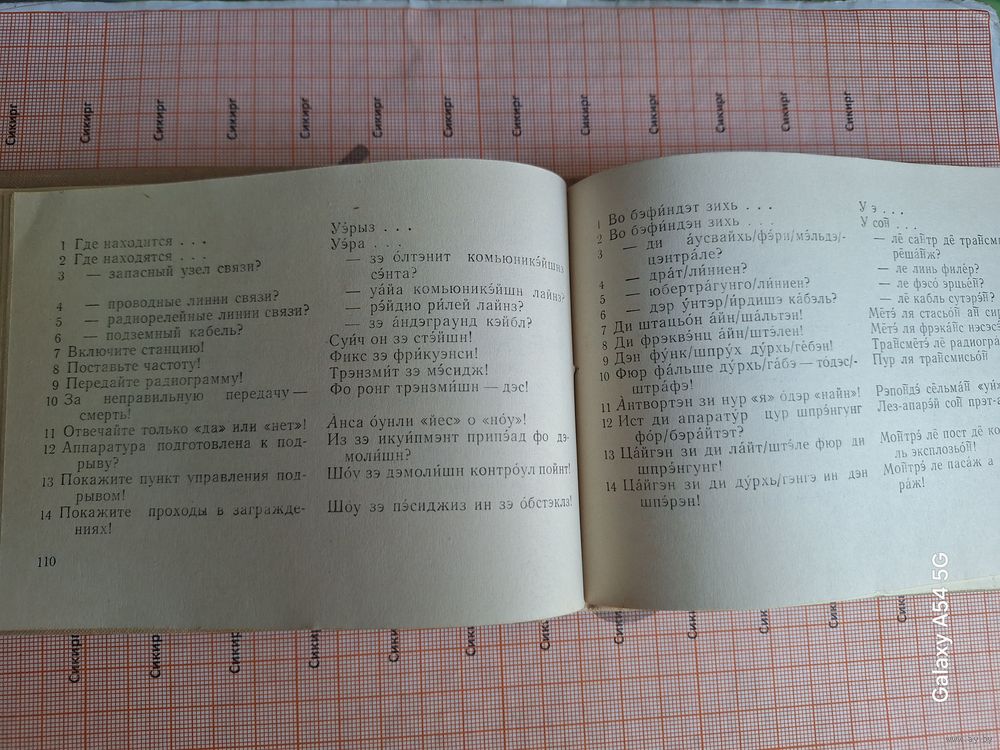 Сикирг Сикирг Сикирг Сикирг Сикирг Сикирг Сикирг Сикирг Сикирг Сикирг Сикирг Сикирг
1 Где находится . . .
2 Где находятся . . .
3 — запасный узел связи?
4 — проводные линии связи?
5 — радиорелейные линии связи?
6 — подземный кабель?
7 Включите станцию!
8 Поставьте частоту!
9 Передайте радиограмму!
10 За неправильную передачу —
смерть!
11 Отвечайте только «да» или «нет»!
12 Аппаратура подготовлена к под-
рыву?
13 Покажите пункт управления под-
рывом!
14 Покажите проходы в загражде-
ниях!
110
Уэ́рыз . . .
Уэ́ра . . .
— зэ о́лтэнит комьюникэ́йшнз
сэ́нта?
— уа́йа комьюникэ́йшн лайнз?
— рэ́йдио ри́лей лайнз?
— зэ а́ндэграунд кэйбл?
Суйч он зэ стэ́йшн!
Фикс зэ фри́куэнси!
Трэнзми́т зэ мэ́сидж!
Фо ронг трэнзми́шн — дэс!
А́нса о́унли «йес» о «но́у»!
Из зэ икуи́пмэнт припэ́ад фо дэ-
моли́шн?
Шо́у зэ дэмоли́шн контро́ул пойнт!
Шо́у зэ пэ́сиджиз ин зэ о́бстэклз!
1 Во бэфи́ндэт зихь . . .
2 Во бэфи́ндэн зихь . . .
3 — ди а́усвайхь/фэ́ри/мэ́льдэ/-
цэнтра́ле?
4 — дра́т/ли́ниен?
5 — юбертра́гунго/ли́ниен?
6 — дэр у́нтэр/и́рдишэ ка́бэль?
7 Ди штацьо́н а́йн/ша́льтэн!
8 Ди фрэквэ́нц а́йн/штэ́лен!
9 Дэн фу́нк/шпру́х ду́рхь/ге́бэн!
10 Фюр фа́льше ду́рхь/га́бэ — то́дэс/-
штра́фэ!
11 А́нтвортэн зи нур «я» о́дэр «найн»!
12 Ист ди апарату́р цур шпрэ́нгунг
фо́р/бэра́йтэт?
13 Ца́йгэн зи ди ла́йт/штэ́ле фюр ди
шпрэ́нгунг!
14 Ца́йгэн зи ди ду́рхь/гэнгэ ин дэн
шпэ́рэн!
У э . . .
У сон . . .
— лё сантр дё трансми
рёшанж?
— ле линь филёр?
— ле фэсо́ эрцье́н?
— лё кабль сутэрэ́н?
Мётэ́ ля стасьо́н ан си
Мётэ́ ля фрэка́нс нэсэсэ
Трансмётэ́ лё радиогра
Пур ля трансмисьо́н
Рэпондэ́ сёльма́н «уи́»
Лез-апарэ́й сон прэт-а
Монтрэ́ лё пост дё ко
ль эксплозьо́н!
Монтрэ́ ле паса́ж а
ра́ж!
Сикирг Сикирг Сикирг Сикирг Сикирг Сикирг
Galaxy A54 5G
www.ay.by